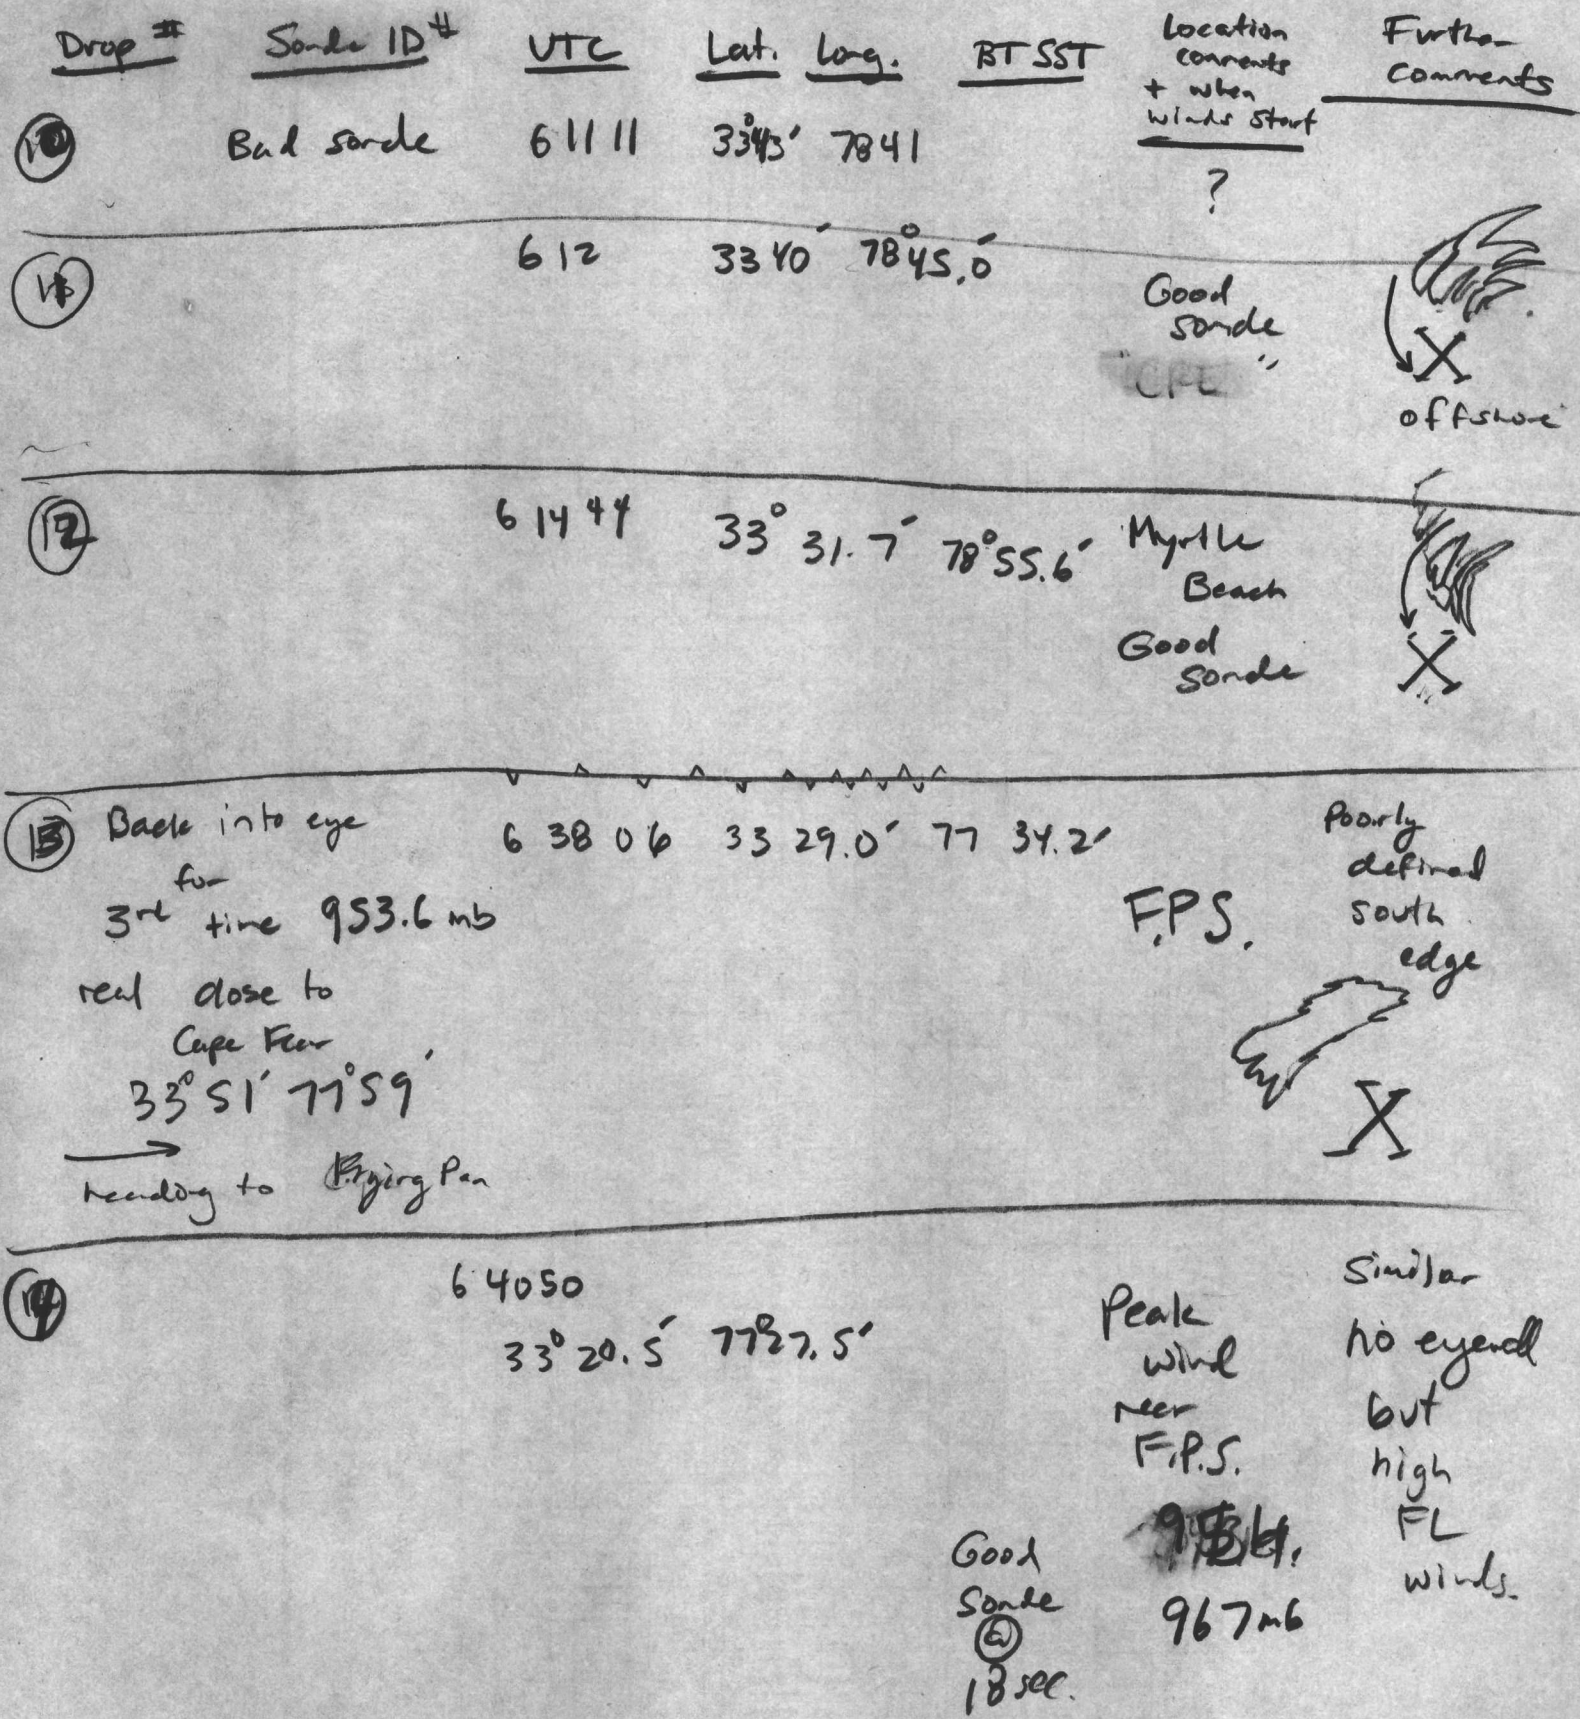 Drop # Sonde ID # UTC Lat. Long. BT SST Location comments + when winds start Further comments
10 Bad sonde 6 11 11 33°43' 78 41 ?
11 6 12 33 40' 78°45.0'
Good
sonde
offshore
12 6 14 44 33° 31.7' 78°55.6' Myrtle
Beach
Good
sonde
13 Back into eye 6 38 06 33 29.0' 77 34.2' Poorly
for
3rd time 953.6 mb
F.P.S.
defined
south
edge
real close to
Cape Fear
33°51' 77°59'
heading to Frying Pan
14 6 40 50
33° 20.5' 77°27.5'
Peak
wind
near
F.P.S.
967 mb
Similar
no eyewall
but
high
FL
winds.
Good
Sonde
@
18 sec.